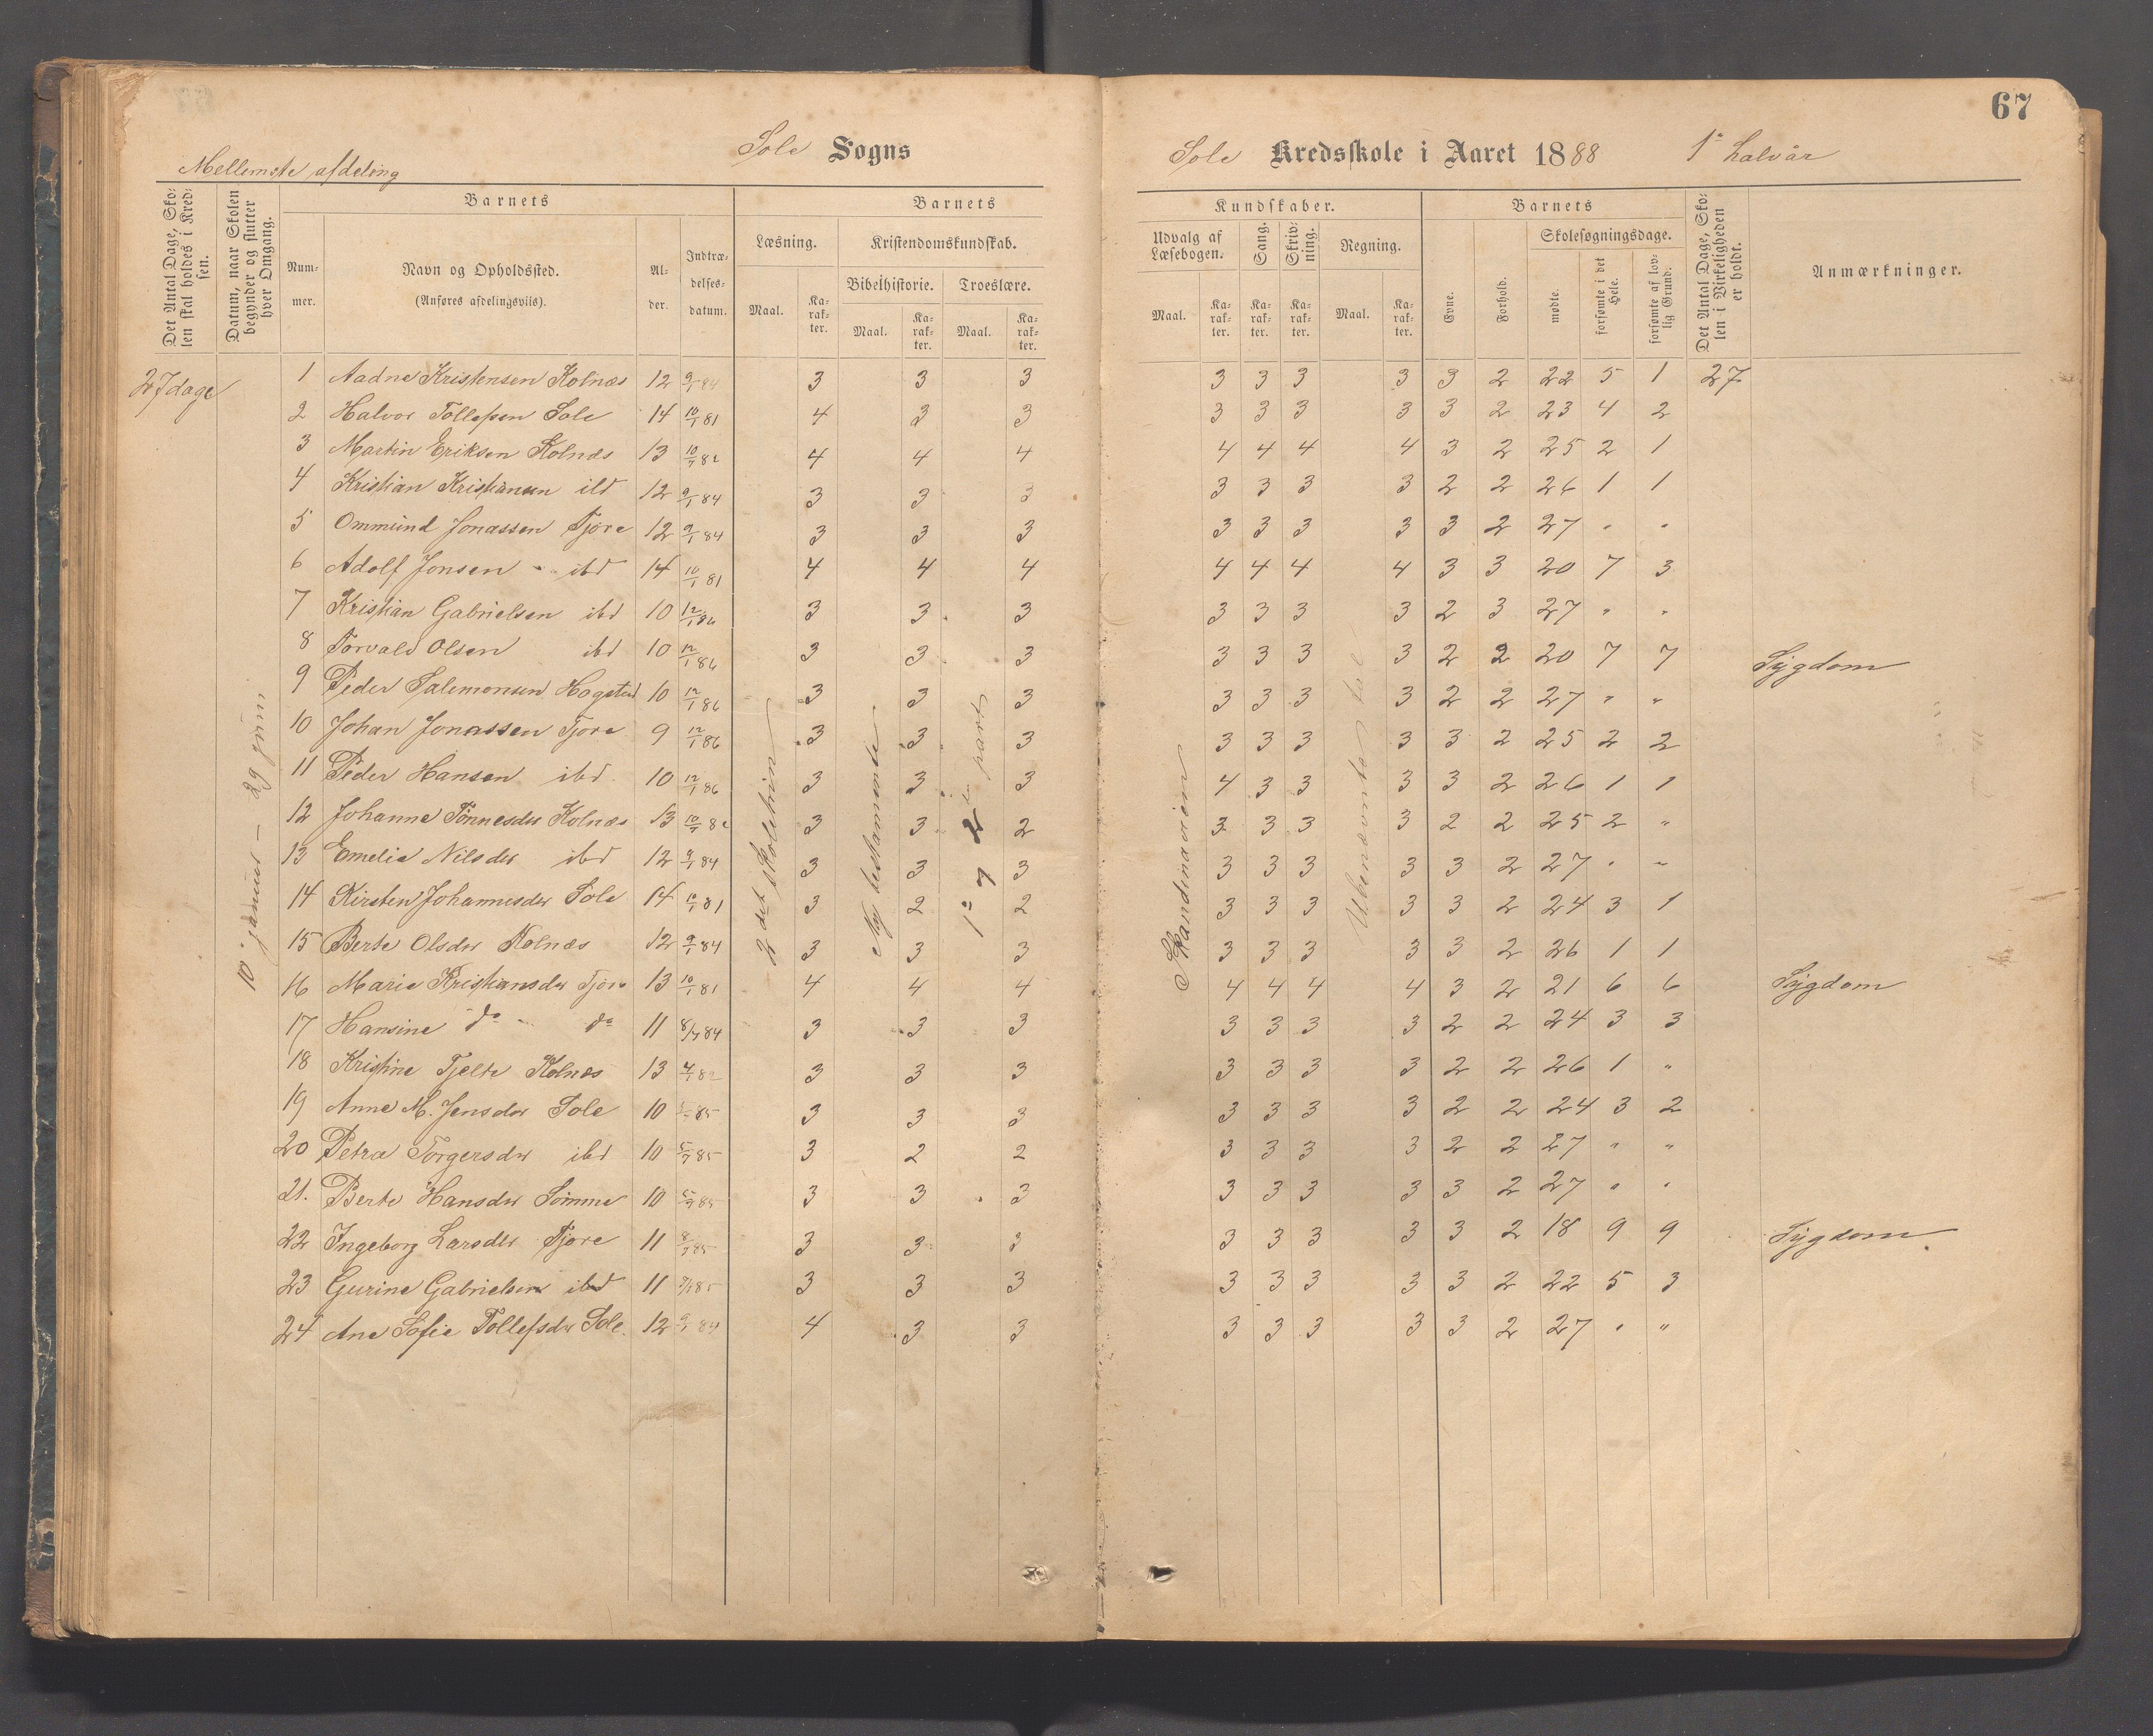 67
Sole Sogns
Sole Kredsskole i Aaret 1888 1ste halvår
Mellemste afdeling
Det Antal Dage, Skolen skal holdes i Kredsen.
Datum, naar Skolen begynder og slutter hver Omgang.
Barnets
Nummer.
Navn og Opholdssted.
(Anføres afdelingsviis).
Alder.
Indtrædelsesdatum.
Barnets
Læsning.
Kristendomskundskab.
Bibelhistorie. Troeslære.
Maal. Karakter. Maal. Karakter. Maal. Karakter.
Kundskaber.
Udvalg af Læsebogen. Sang. Skrivning. Regning.
Maal. Karakter. Karakter. Karakter. Maal. Karakter.
Barnets
Evne. Forhold. Skolesøgningsdage.
mødte. forsømte i det Hele. forsømte af lovlig Grund.
Det Antal Dage, Skolen i Virkeligheden er holdt.
Anmærkninger.
27 dage
10 januar – 29 juni
2det skoletrin
Ny testamente
1ste og 2den part
Skandinavien
Ubenævnte tal
1 Aadne Kristensen Kolnæs 12 9/1 84 3 3 3 3 3 3 3 3 2 22 5 1 27
2 Halvor Tollefsen Sole 14 10/1 81 4 3 3 3 3 3 3 3 2 23 4 2
3 Martin Eriksen Kolnæs 13 10/7 82 4 4 4 4 4 4 4 3 2 25 2 1
4 Kristian Kristiansen ibd 12 9/1 84 3 3 3 3 3 3 3 2 2 26 1 1
5 Ommund Jonassen Tjore 12 9/1 84 3 3 3 3 3 3 3 3 2 27 " "
6 Adolf Jonsen - ibd 14 10/1 81 4 4 4 4 4 4 4 3 3 20 7 3
7 Kristian Gabrielsen ibd 10 12/1 86 3 3 3 3 3 3 3 2 3 27 " "
8 Torvald Olsen ibd 10 12/1 86 3 3 3 3 3 3 3 2 2 20 7 7 Sygdom
9 Peder Salemonsen Hogstad 10 12/1 86 3 3 3 3 3 3 3 2 2 27 " "
10 Johan Jonassen Tjore 9 12/1 86 3 3 3 3 3 3 3 3 2 25 2 2
11 Peder Hansen ibd 10 12/1 86 3 3 3 4 3 3 3 3 2 26 1 1
12 Johanne Tönnesdtr Kolnæs 13 10/7 82 3 3 2 3 3 3 3 2 2 25 2 "
13 Emelie Nilsdtr ibd 12 9/1 84 3 3 3 3 3 3 3 3 2 27 " "
14 Kirsten Johannesdtr Sole 14 10/1 81 3 2 2 3 3 3 3 3 2 24 3 1
15 Berte Olsdtr Kolnæs 12 9/1 84 3 3 3 3 3 3 3 3 2 26 1 1
16 Marie Kristiansdtr Tjore 13 10/1 81 4 4 4 4 4 4 4 3 2 21 6 6 Sygdom
17 Hansine do - do 11 8/7 84 3 3 3 3 3 3 3 2 2 24 3 3
18 Kristine Tjelte Kolnæs 13 4/1 82 3 3 3 3 3 3 3 2 2 26 1 "
19 Anne M. Jensdtr Sole 10 85 3 3 3 3 3 3 3 2 2 24 3 2
20 Petra Torgersdtr ibd 10 5/7 85 3 2 2 3 3 3 3 2 2 27 " "
21. Berte Hansdtr Sömme 10 5/7 85 3 3 3 3 3 3 3 3 2 27 " "
22 Ingeborg Larsdtr Tjore 11 8/7 85 3 3 3 3 3 3 3 3 2 18 9 9 Sygdom
23 Gurine Gabrielsen ibd 11 85 3 3 3 3 3 3 3 3 2 22 5 3
24 Ane Sofie Tollefsdtr Sole. 12 9/1 84 4 3 3 3 3 3 3 3 2 27 " "